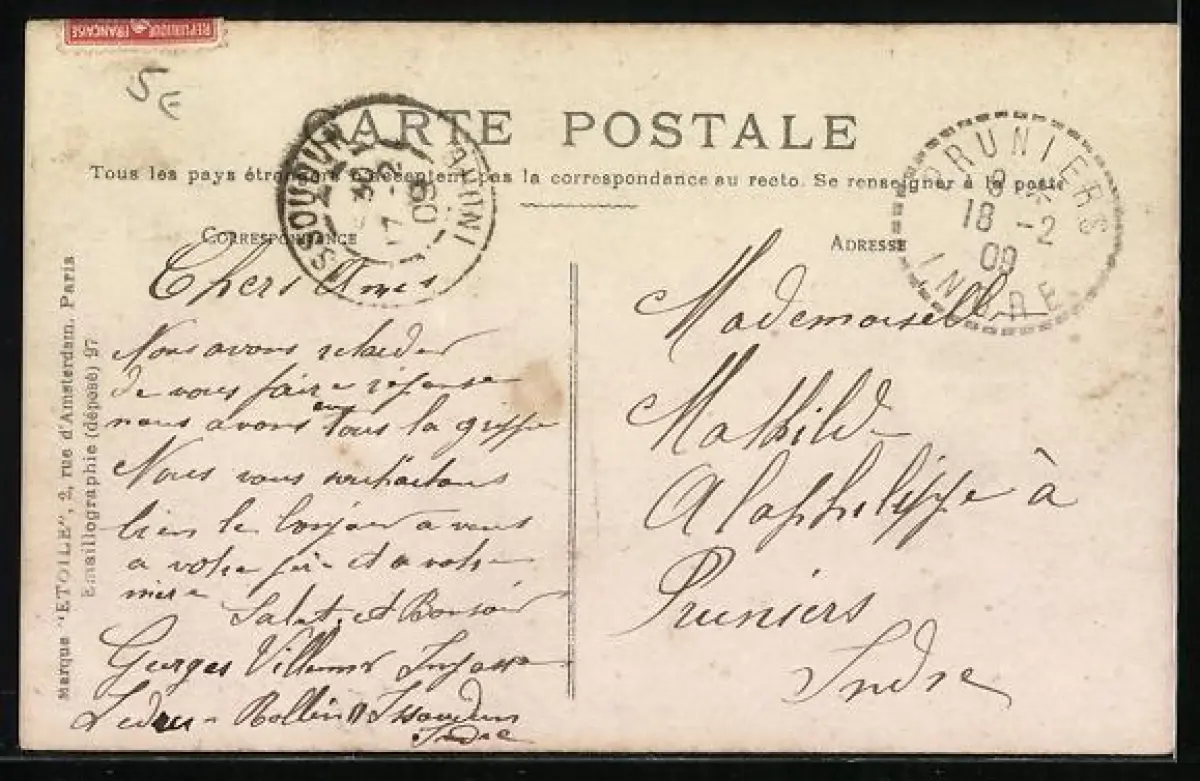 REPUBLIQUE FRANÇAISE
5€
CARTE POSTALE
Tous les pays étrangers n'acceptent pas la correspondance au recto. Se renseigner à la poste
ISSOUDUN
17 -2
09
INDRE
PRUNIERS
18 -2
09
INDRE
CORRESPONDANCE
Chers Amis
Nous avons
de vous faire réponse
nous avons eu tous la grippe
Nous vous souhaitons
bien le bonjour a vous
a votre père et a votre
mère
Salut et Bonsoir
Georges
Ledru-Rollin Issoudun
Indre
ADRESSE
Mademoiselle
Mathilde
Alaphilippe à
Pruniers
Indre
Marque "ETOILE", 2, rue d'Amsterdam, Paris
Emaillographie (déposé) 97